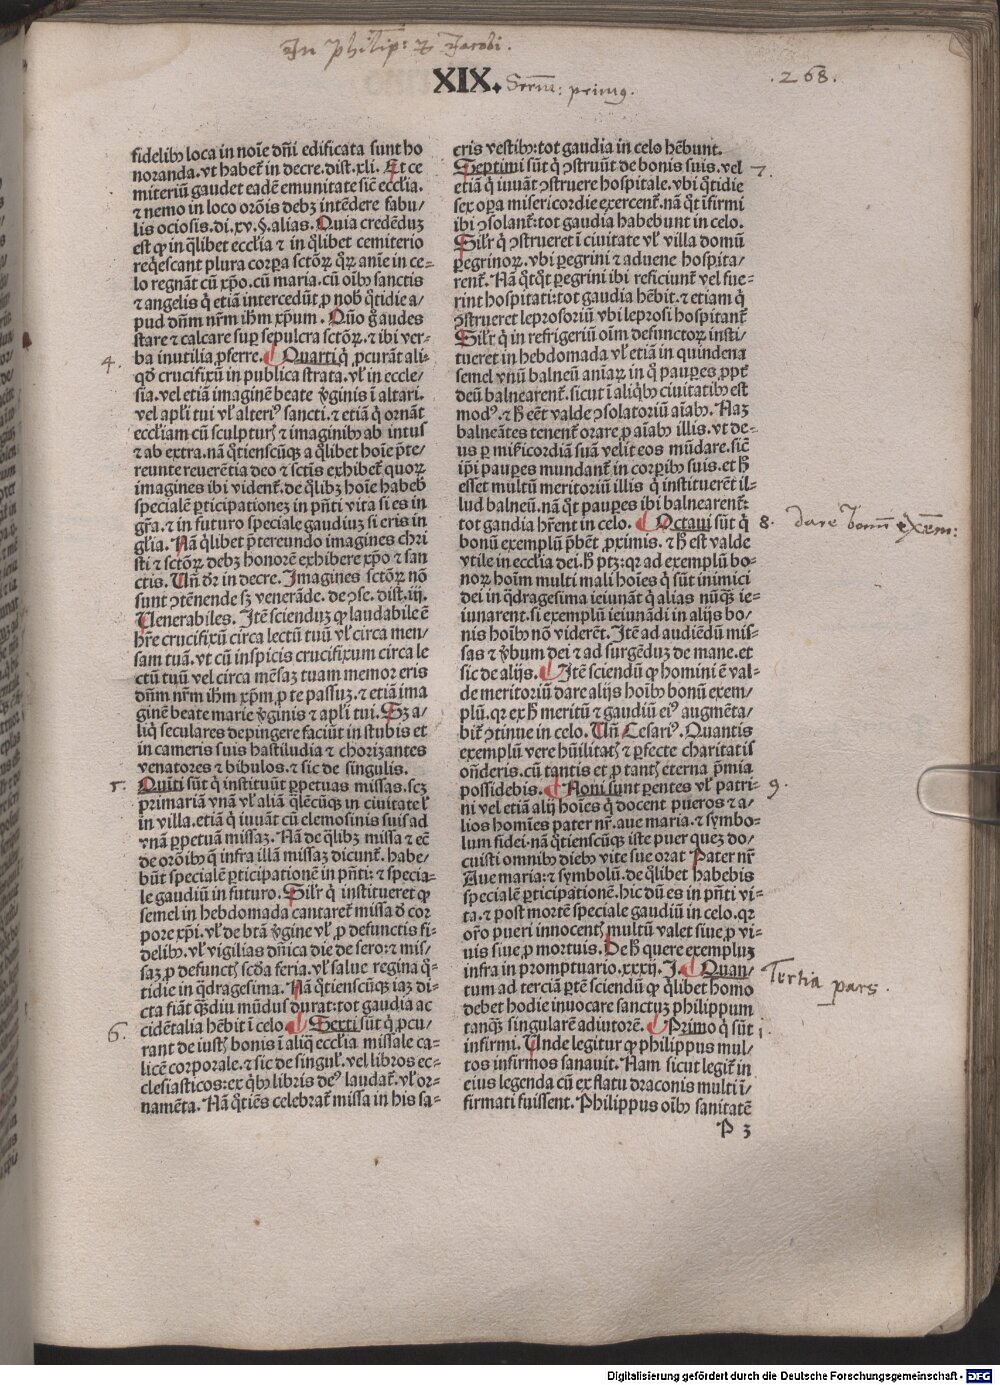 In Philip: & Jacobi.
XIX. Serm̄: primꝰ.
.268.
fidelibꝰ loca in noīe dn̄i edificata sunt ho
noranda. vt habet̄ in decre. dist. xli. Et ce
miteriū gaudet eadē emunitate sic̄ eccl̄ia.
⁊ nemo in loco orōis debꝫ intēdere fabu/
lis ociosis. di. xv. §. alias. Quia credēduꝫ
est ꝙ in q̄libet eccl̄ia ⁊ in q̄libet cemiterio
req̄escant plura corpꝑa sctōꝝ qꝝ anīe in ce-
lo regnāt cū xp̄o. cū maria. cū oībꝰ sanctis
⁊ angelis q̇ etiā intercedūt ꝓ nob̄ q̄tidie a/
pud dn̄m nr̄m ih̄m xp̄um. Quō gaudes
stare ⁊ calcare suꝑ sepulcra sctōꝝ. ⁊ ibi ver-
ba inutilia ꝓferre. ¶ Quarti q̇ ꝓcurāt ali-
4.
qd̄ crucifixū in publica strata. vl̄ in eccle/
sia. vel etiā imaginē beate v̄ginis ī altari.
vel apl̄i tui vl̄ alteriꝰ sancti. ⁊ etiā q̇ ornāt
eccl̄iam cū sculpturꝭ ⁊ imaginibꝰ ab intus
⁊ ab extra. nā q̄tienscūqꝫ a q̄libet hoīe p̄te/
reunte reuerētia deo ⁊ sctīs exhibet̄ quoꝝ
imagines ibi vident̄. de q̄libꝫ hoīe habeb̄
specialē ꝑticipationeꝫ in pn̄ti vita si es in
gr̄a. ⁊ in futuro speciale gaudiuꝫ si eris in
gl̄ia. Nā q̄libet p̄tereundo imagines chri
sti ⁊ sctōꝝ debꝫ honorē exhibere xp̄o ⁊ san
ctis. Vn̄ dr̄ in decre. Imagines sctōꝝ nō
sunt ↄtēnende sꝫ venerāde. de ↄse. dist. iij.
Venerabiles. Itē scienduꝫ ꝙ laudabile ē
hr̄e crucifixū circa lectū tuū vl̄ circa men/
sam tuā. vt cū inspicis crucifixum circa le
ctū tuū vel circa mēsaꝫ tuam memor eris
dn̄m nr̄m ih̄m xp̄m ꝓ te passuꝫ. ⁊ etiā ima
ginē beate marie v̄ginis ⁊ apl̄i tui. Sꝫ a/
liq̇ seculares depingere faciūt in stubis et
in cameris suis hastiludia ⁊ chorizantes
venatores ⁊ bibulos. ⁊ sic de singulis.
5. Quīti sūt q̇ instituūt ꝑpetuas missas. scꝫ
primariā vnā vl̄ aliā q̄lēcūqꝫ in ciuitate vl̄
in villa. etiā q̇ iuuāt cū elemosinis suis ad
vnā ꝑpetuā missaꝫ. Nā de q̄libꝫ missa ⁊ ec̄
de orōibꝰ q̄ infra illā missaꝫ dicunt̄. habe/
būt specialē ꝑticipationē in pn̄ti: ⁊ specia-
le gaudiū in futuro. Silr̄ q̇ institueret ꝙ
semel in hebdomada cantaret̄ missa d̄ cor
pore xp̄i. vl̄ de btā v̄gine vl̄ ꝓ defunctis fi-
delibꝰ. vl̄ vigilias dn̄ica die de sero: ⁊ mis/
saꝫ ꝓ defunctꝭ scd̄a feria. vl̄ salue regina q̄-
tidie in q̄dragesima. Nā q̄tienscūqꝫ iaꝫ di-
cta fiāt q̄diu mūdus durat: tot gaudia ac
cidētalia hēbit ī celo. ¶ Sexti sūt q̇ ꝓcu/
6.
rant de iustꝭ bonis ī aliq̄ eccl̄ia missale ca-
licē corporale. ⁊ sic de singul̄. vel libros ec-
clesiasticos: ex q̇bꝰ libris deꝰ laudat̄. vl̄ or-
namēta. Nā q̄tiēs celebrat̄ missa in his sa-
cris vestibꝰ: tot gaudia in celo hēbunt.
Septimi sūt q̇ ↄstruūt de bonis suis. vel
7.
etiā q̇ iuuāt ↄstruere hospitale. vbi q̄tidie
sex oꝑa misericordie exercent̄. nā q̄t ifirmi
ibi ↄsolant̄: tot gaudia habebunt in celo.
Silr̄ q̇ ↄstrueret ī ciuitate vl̄ villa domū
ꝑegrinoꝝ. vbi ꝑegrini ⁊ aduene hospita/
rent̄. Nā q̄tq̄t ꝑegrini ibi reficiunt̄ vel fue-
rint hospitati: tot gaudia hēbit. ⁊ etiam q̇
ↄstrueret leprosoriū vbi leprosi hospitant̄
Silr̄ q̇ in refrigeriū oīm defunctoꝝ insti/
tueret in hebdomada vl̄ etiā in quindena
semel vnū balneū aniaꝝ in q̄ pauꝑes ꝓpt̄
deū balnearent̄. sicut ī aliq̇bꝰ ciuitatibꝰ est
modꝰ. ⁊ h̄ eēt valde ↄsolatoriū aīabꝰ. Naꝫ
balneātes tenent̄ orare ꝓ aīabꝰ illis. vt de-
us ꝑ mi̇cordiā suā velit eos mūdare. sic̄
ip̄i pauꝑes mundant̄ in corꝑibꝰ suis. et h̄
esset multū meritoriū illis q̇ instituerēt il-
lud balneū. nā q̄t pauꝑes ibi balnearent̄:
tot gaudia hr̄ent in celo. ¶ Octaui sūt q̇
8. dare bonū exēm:
bonū exemplū p̄bēt ꝓximis. ⁊ h̄ est valde
vtile in eccl̄ia dei. h̄ ptꝫ: qr ad exemplū bo-
noꝝ hoīm multi mali hoīes q̇ sūt inimici
dei in q̄dragesima ieiunāt q̇ alias nūqꝫ ie-
iunarent. si exemplū ieiunādi in alijs bo/
nis hoībꝰ nō viderēt. Itē ad audiēdū mis/
sas ⁊ v̄bum dei ⁊ ad surgēduꝫ de mane. et
sic de alijs. ¶ Itē sciendū ꝙ homini ē val-
de meritoriū dare alijs hoībꝰ bonū exem/
plū. qr ex h̄ meritū ⁊ gaudiū eiꝰ augmēta/
bit̄ ↄtinue in celo. Vn̄ Cesariꝰ. Quantis
exemplū vere hūilitatꝭ ⁊ ꝑfecte charitatis
on̄deris. cū tantis et ꝓ tantꝭ eterna p̄mia
possidebis. ¶ Noni sunt ꝑentes vl̄ patri-
9.
ni vel etiā alij hoīes q̇ docent pueros ⁊ a/
lios homīes pater nr̄. aue maria. ⁊ symbo/
lum fidei. nā q̄tienscūqꝫ iste puer queꝫ do/
cuisti omnibꝰ diebꝰ vite sue orat Pater nr̄
Aue maria: ⁊ symbolū. de q̄libet habebis
specialē ꝑticipationē. hic dū es in pn̄ti vi-
ta. ⁊ post mortē speciale gaudiū in celo. qr
or̄o pueri innocentꝭ multū valet siue ꝓ vi/
uis siue ꝓ mortuis. De h̄ quere exempluꝫ
infra in promptuario. xxxij. J. ¶ Quan/
Tertia pars.
tum ad terciā ꝑtē sciendū ꝙ q̄libet homo
debet hodie inuocare sanctuꝫ philippum
tanqꝫ singularē adiutorē. ¶ Primo q̇ sūt
1.
infirmi. Unde legitur ꝙ philippus mul/
tos infirmos sanauit. Nam sicut legit̄ in
eius legenda cū ex flatu draconis multi ī/
firmati fuissent. Philippus oībꝰ sanitatē
P 3
Digitalisierung gefördert durch die Deutsche Forschungsgemeinschaft - DFG